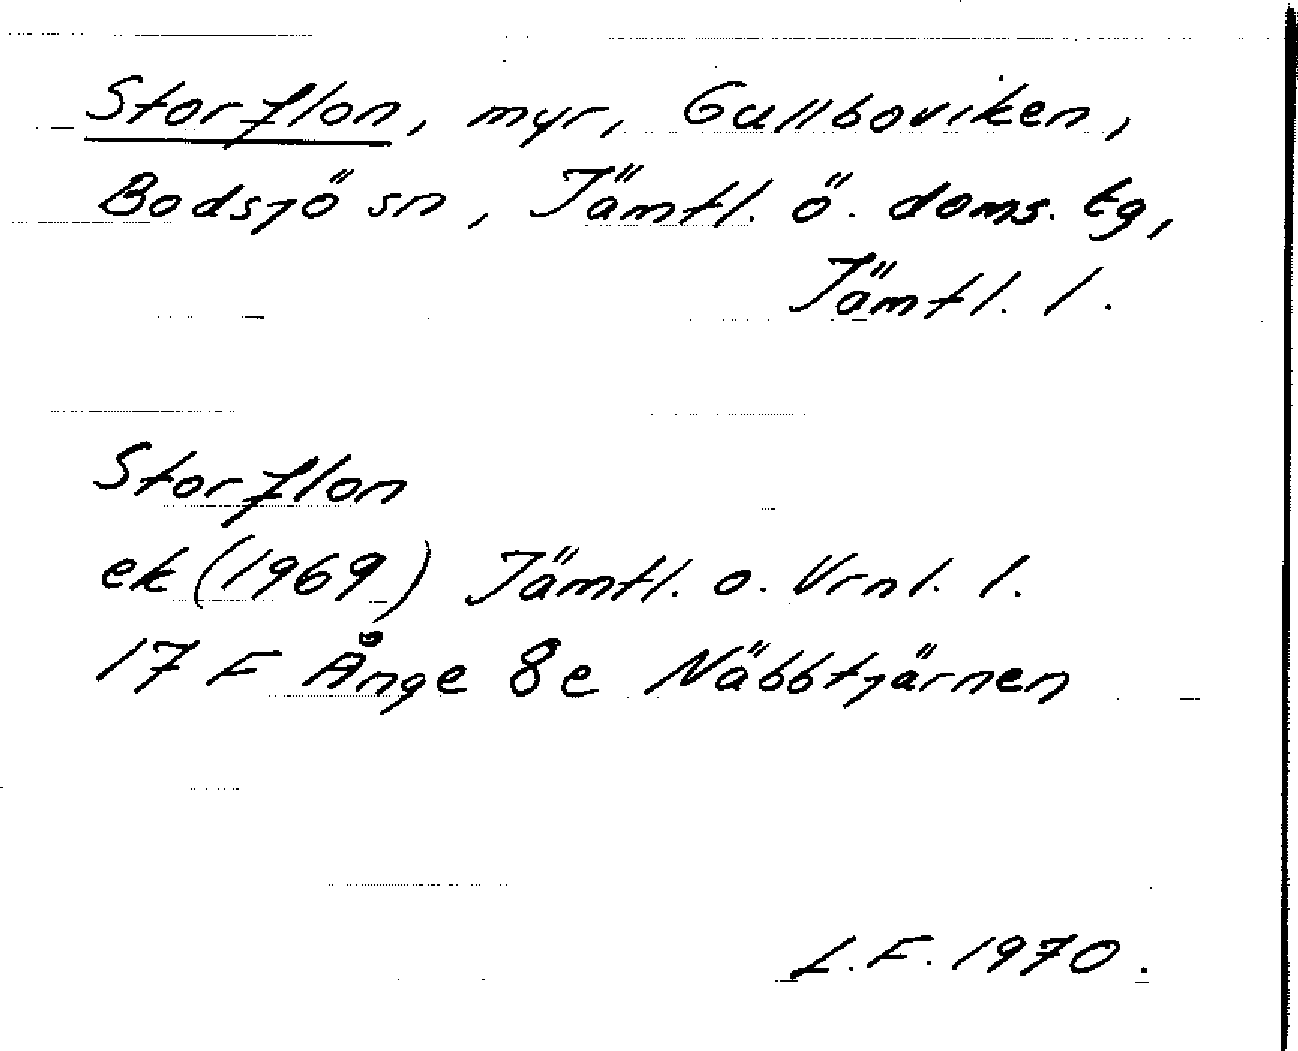 Storflon, myr, Gullboviken,
Bodsjö sn, Jämtl. ö. doms. tg,
Jämtl. l.
Storflon
ek (1969) Jämtl. o. Vrnl. l.
17 F Ånge 8e Näbbtjärnen
L.F. 1970.